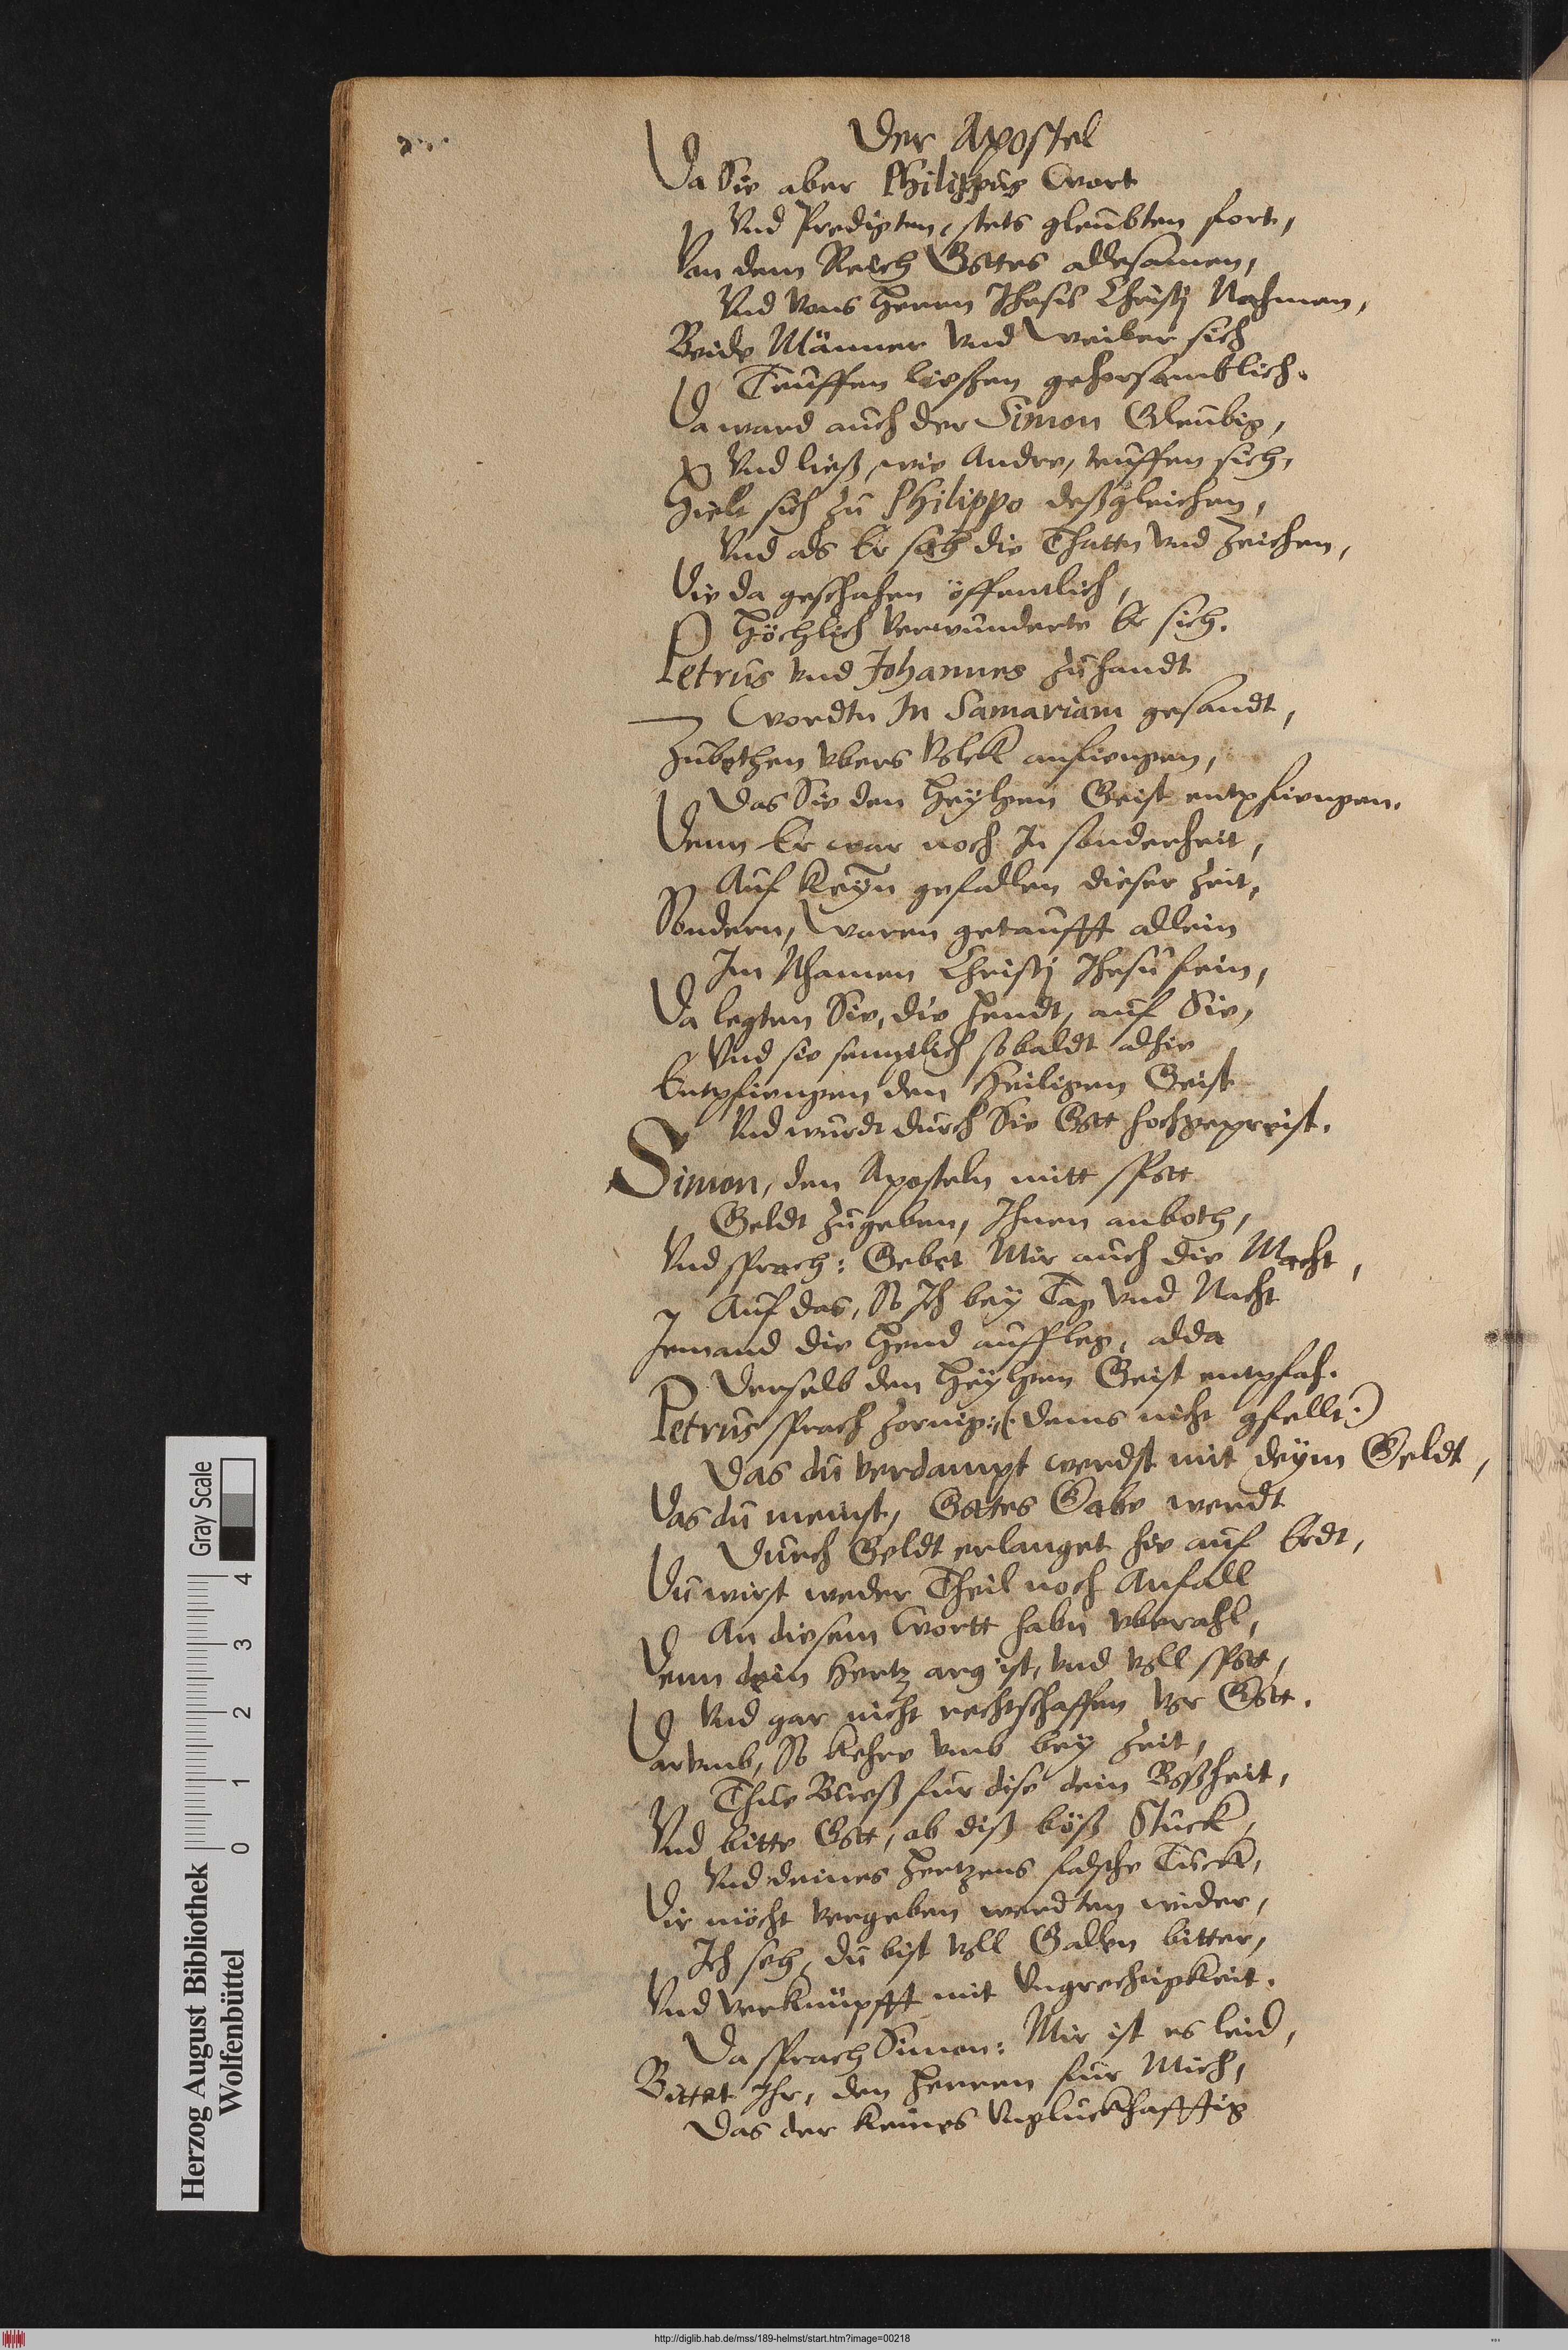 Der Apostel
Da Sie aber Philippus Wort
Vnd Predigten, stets gleubten fort,
Von dem Reich Gottes allesamen,
Vnd vons Herrn Jhesus Christj Nahmen,
Beide Männer vnd Weiber sich
Teuffen liessen gehorsamblich.
Da ward auch der Simon Gleubig,
Vnd ließ, wie Andre, teuffen sich,
Hielt sich zu Philippo deßgleichen,
Vnd als Er sah die Thattn vnd Zeichen,
Die da geschahen öffentlich,
Höchlich verwunderte Er sich.
Petrus vnd Johannes zuhandt
Wordtn In Samariam gesandt,
Zubethen vbers Volck anfiengen,
Das Sie den Heylgen Geist entpfiengen.
Denn Er war noch In sonderheit,
Auf Keyn gefallen dieser Zeit,
Sondern, Waren getaufft allein
Im Nhamen Christj Jhesu fein,
Da legten Sie, die Hendt, auf Sie,
Vnd sie semptlich sobaldt alhie
Entpfiengen den Heiligen Geist
Vnd wurdt durch Sie Gott hochgepreist.
Simon, den Aposteln mitt Spott
Geldt zugeben, Ihnen anboth,
Vnd sprach: Gebet Mir auch die Macht,
Auf das, So Ich bey Tag vnd Nacht
Jemand die Hend auffleg, allda
Derselb den Heylgen Geist entpfah.
Petrus sprach zornig: (dems nicht gfellt:)
Das du verdampt werdst mit deym Geldt,
Das du meinst, Gottes Gabe werdt
Durch Geldt erlanget hie auf Erdt,
Du wirst weder Theil noch Anfall
An diesem Wortt habn vberahl,
Denn dein Hertz arg ist, vnd voll Spott,
Vnd gar nicht rechtschaffen vor Gott.
Darvmb, So kehre vmb bey Zeit,
Thue Buess fur dise dein Boßheit,
Vnd bitte Gott, ob diß böß Stuck,
Vnd deines Hertzens falsche Tuck,
Dir möcht vergeben werdten wider,
Ich seh, du bist voll Gallen bitter,
Vnd verknüpfft mit Vngrechtigkeit.
Da sprach Simon: Mir ist es leid,
Bittet Ihr, den Herren fur Mich,
Das der keines Vngluckhafftig
Herzog August Bibliothek
Wolfenbüttel
Gray Scale
0 1 2 3 4
http://diglib.hab.de/mss/189-helmst/start.htm?image=00218